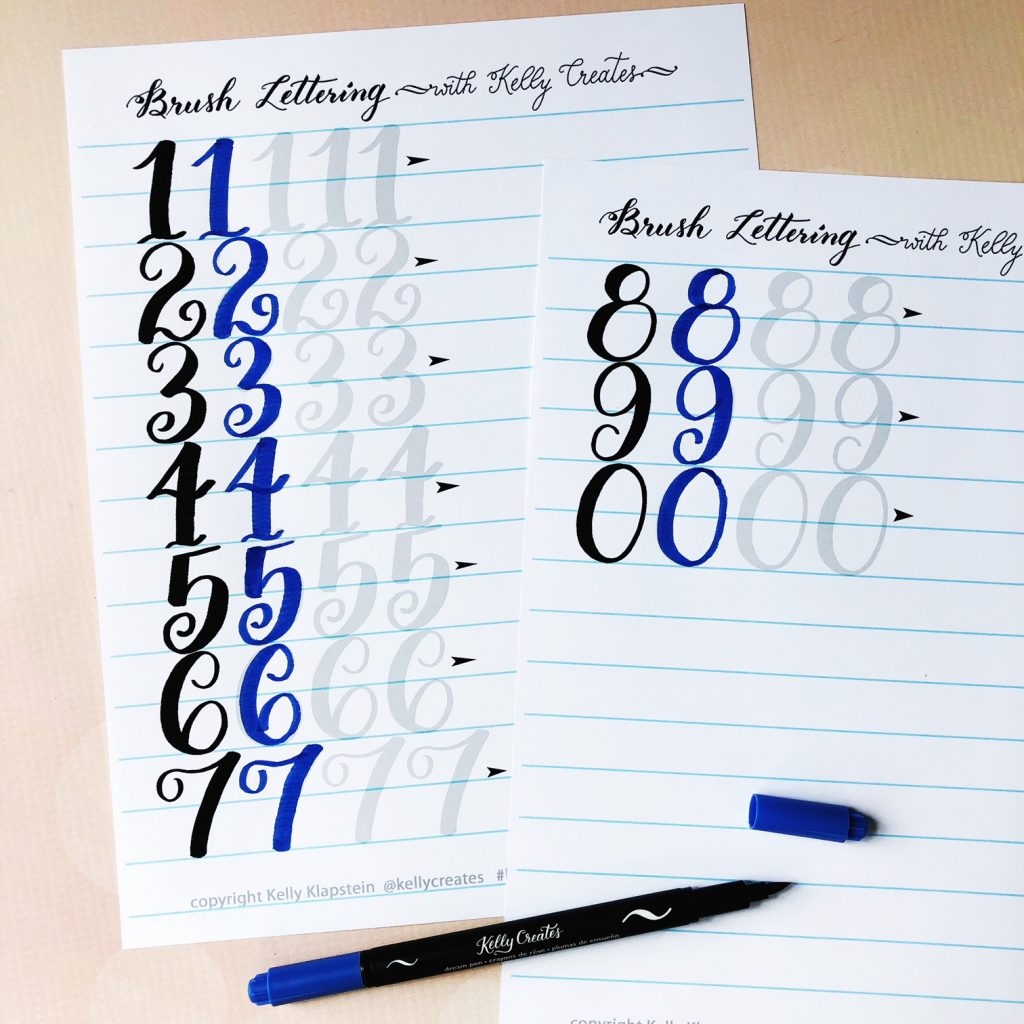 Brush Lettering with Kelly Creates
1 1 1 1 1
2 2 2 2
3 3 3 3
4 4 4 4
5 5 5 5
6 6 6 6
7 7 7 7
copyright Kelly Klapstein @kellycreates #
Brush Lettering with Kelly
8 8 8 8
9 9 9 9
0 0 0 0
Kelly Creates
dream pen • crayons de rêve • plumas de ensueño
copyright Kelly